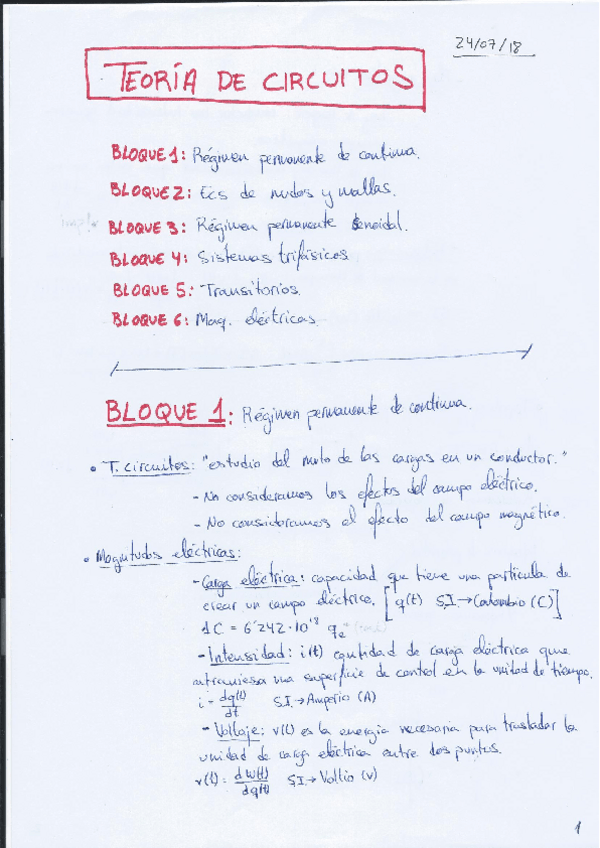 24/07/18
TEORÍA DE CIRCUITOS
BLOQUE 1: Régimen permanente de continua.
BLOQUE 2: Ecs de nudos y mallas.
BLOQUE 3: Régimen permanente senoidal.
BLOQUE 4: Sistemas trifásicos
BLOQUE 5: Transitorios.
BLOQUE 6: Maq. eléctricas.
BLOQUE 1: Régimen permanente de continua.
• T. circuitos: "estudio del mvto de las cargas en un conductor."
- No consideramos los efectos del campo eléctrico.
- No consideramos el efecto del campo magnético.
• Magnitudes eléctricas:
- Carga eléctrica: capacidad que tiene una partícula de
crear un campo eléctrico. [q(t) S.I.→Coulombio (C)]
1C = 6'242·10¹⁸ qe
- Intensidad: i(t) cantidad de carga eléctrica que
atraviessa una superficie de control en la unidad de tiempo.
i = dq(t)/dt S.I.→Amperio (A)
- Voltaje: v(t) es la energía necesaria para trasladar la
unidad de carga eléctrica entre dos puntos.
v(t) = dW(t)/dq(t) S.I.→Voltio (v)
1